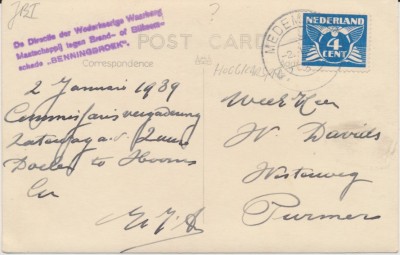 De Directie der Wederkeerige Waarborg
Maatschappij tegen Brand- of Bliksem-
schade „BENNINGBROEK".
POST CARD
Correspondence
?
NEDERLAND
4
CENT
MEDEMBL
2 Januarie 1939
Commissaris vergadering
Zaterdag a.s. 2 uur
Doelen te Hoorn
WelEd Heer
W. Davids
Westerweg
Purmer